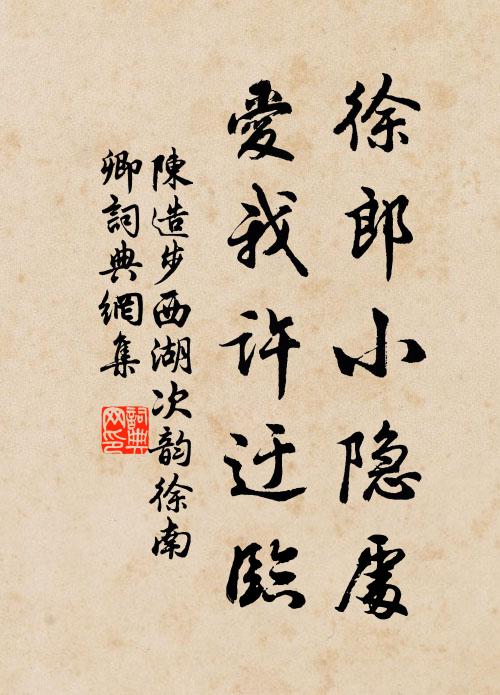 徐郎小隐處
愛我許迂臨
陳造步西湖次韵徐南
卿詞典網集
詞典网印